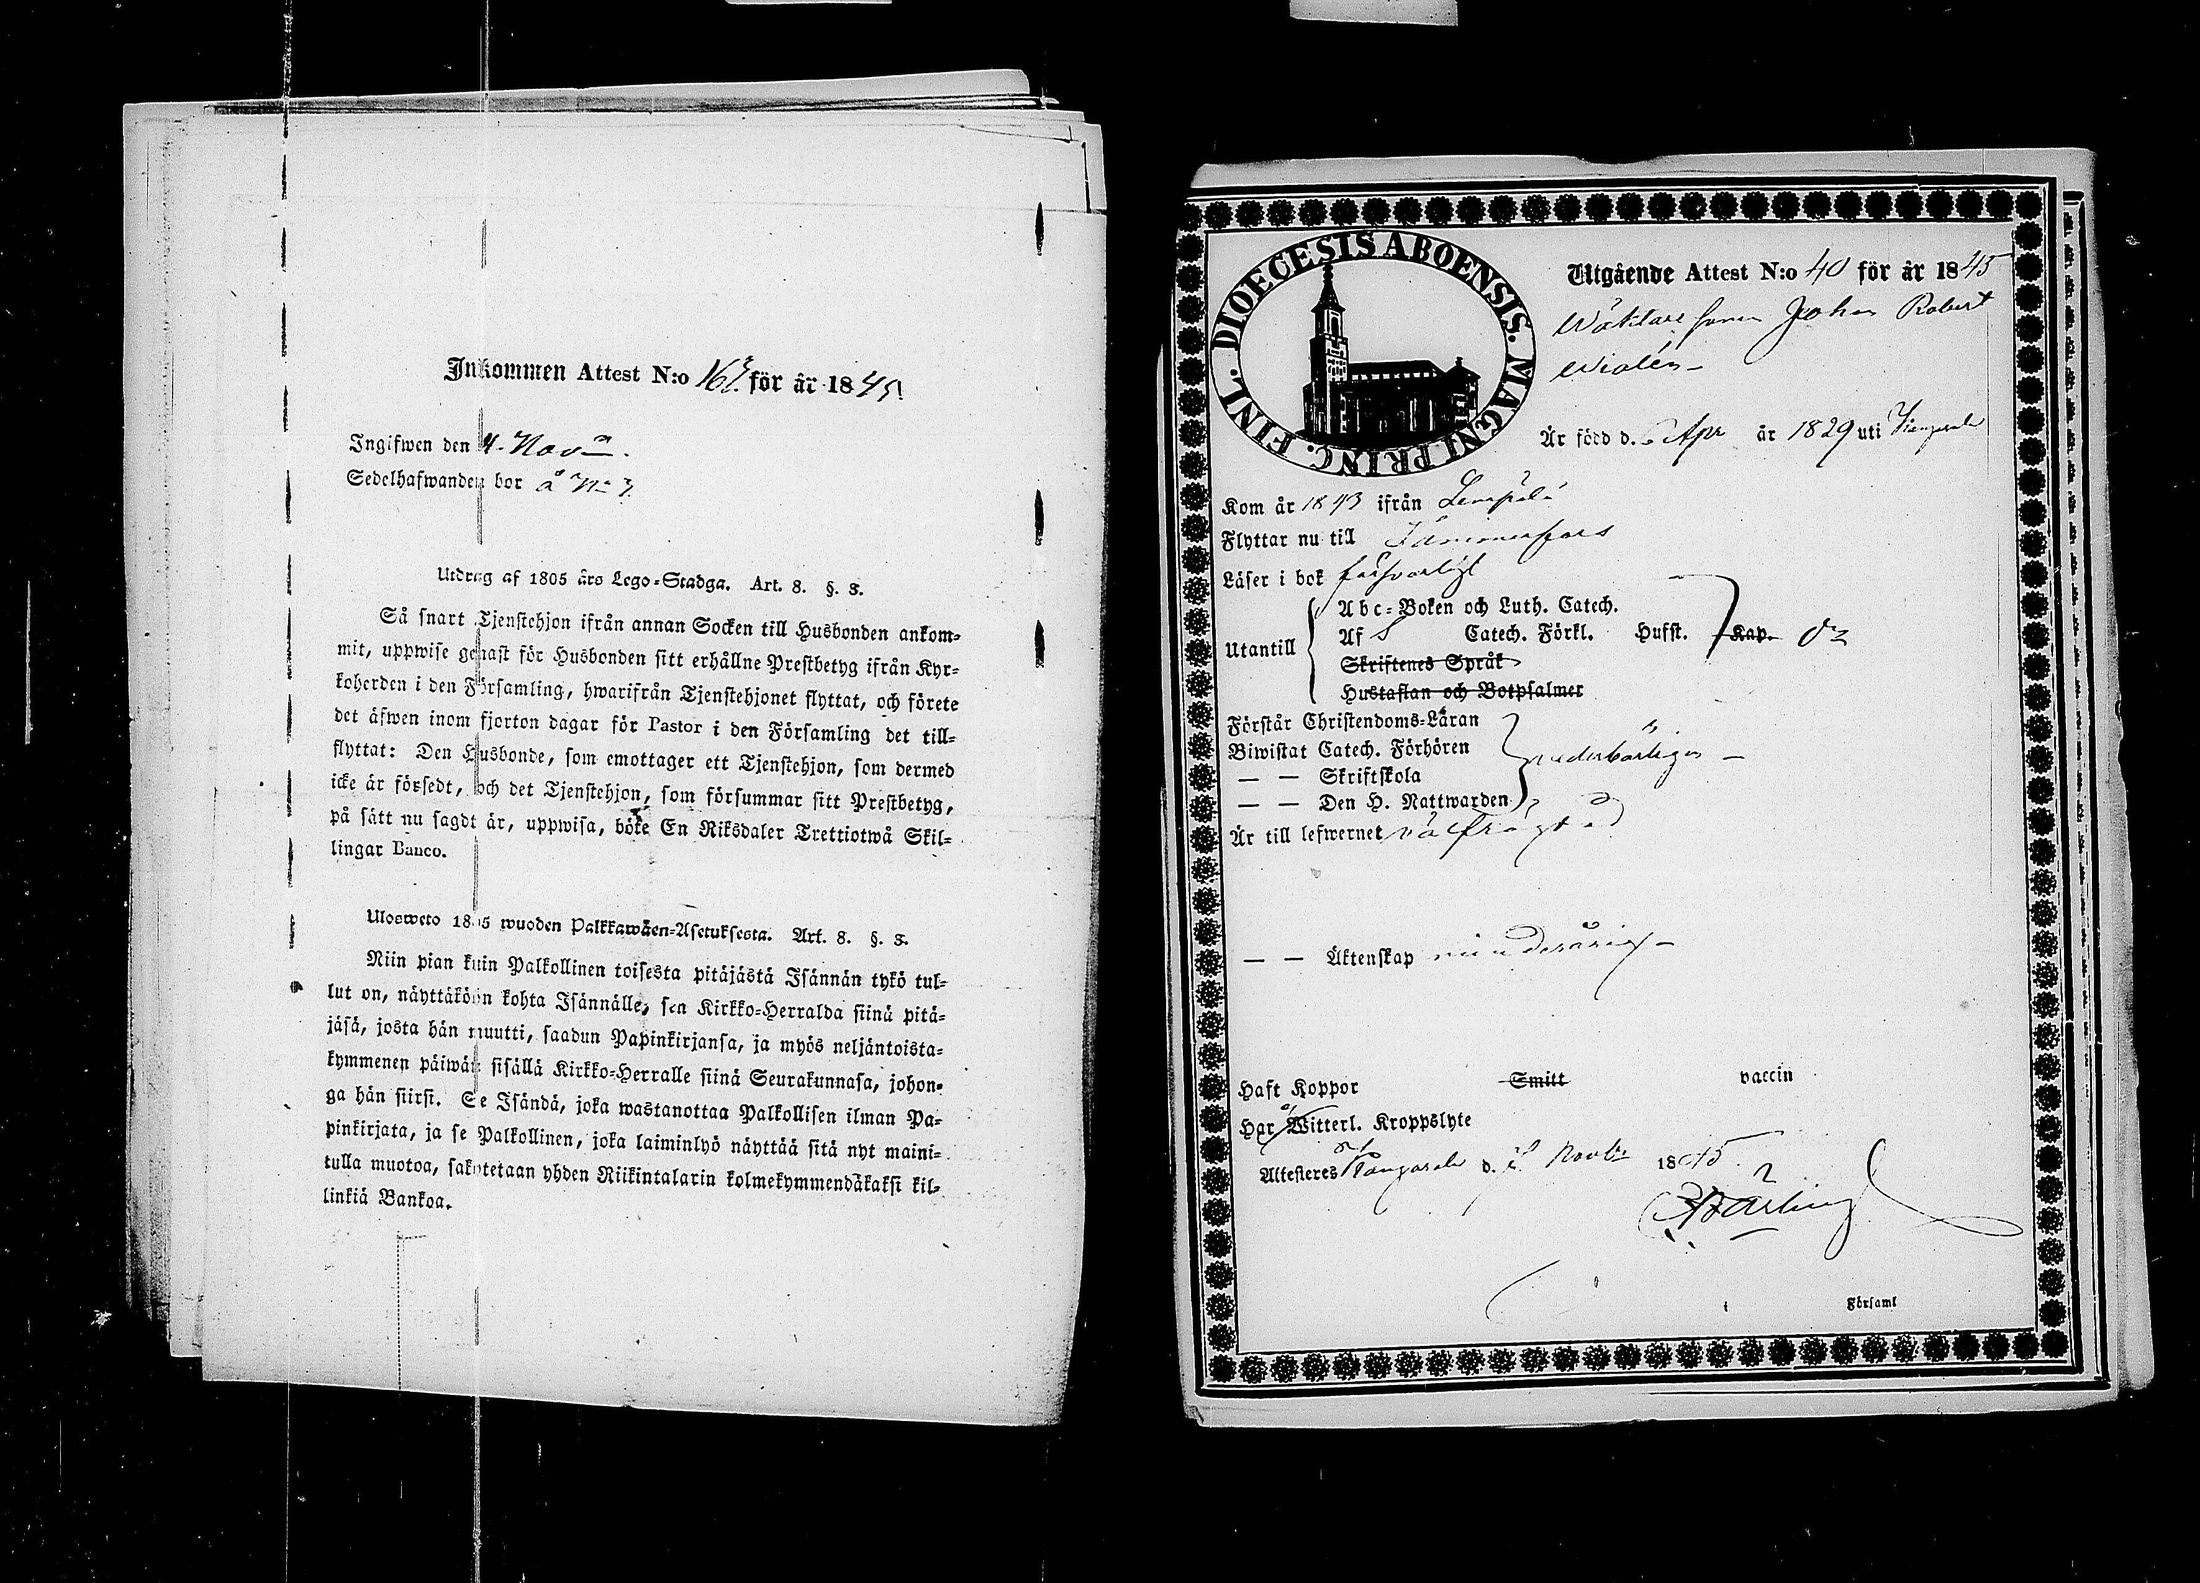 Inkommen Attest N:o 163. för år 1845.
Ingifwen den 4. Nov
Sedelhafwanden bor å N:
Utdrag af 1805 års Lego-Stadga. Art. 8. §. 3.
Så snart Tjenstehjon ifrån annan Socken till Husbonden ankom-
mit, uppwise genast för Husbonden sitt erhållne Prestbetyg ifrån Kyr-
koherden i den Församling, hwarifrån Tjenstehjonet flyttat, och förete
det äfwen inom fjorton dagar för Pastor i den Församling det till-
flyttat: Den Husbonde, som emottager ett Tjenstehjon, som dermed
icke är försedt, och det Tjenstehjon, som försummar sitt Prestbetyg,
på sätt nu sagdt är, uppwisa, böte En Riksdaler Trettiotwå Skil-
lingar Banco.
Ulosweto 1805 wuoden Palkkawäen-Asetuksesta. Art. 8. §. 3.
Niin pian kuin Palkollinen toisesta pitäjästä Isännän tykö tul-
lut on, näyttäköön kohta Isännälle, sen Kirkko-Herralda siinä pitä-
jäsä, josta hän muutti, saadun Papinkirjansa, ja myös neljäntoista-
kymmenen päiwän sisällä Kirkko-Herralle siinä Seurakunnasa, johon-
ga hän siirsi. Se Isändä, joka wastanottaa Palkollisen ilman Pa-
pinkirjata, ja se Palkollinen, joka laiminlyö näyttää sitä nyt maini-
tulla muotoa, sakotetaan yhden Riikintalarin kolmekymmendäkaksi kil-
linkiä Bankoa.
DIOECESIS ABOENSIS. MAGNI PRINC. FINL.
Utgående Attest N:o 40 för år 1845
Wäktare sonen Johan Robert
Widlén
Är född d. Apr år 1829 uti Kangasala
Kom år 1843 ifrån Lempälä
Flyttar nu till Tammerfors
Läser i bok försvarligt
Utantill
Abc-Boken och Luth. Catech.
Af S Catech. Förkl. Husst. Kap.
Skriftenes Språk
Hustaflan och Botpsalmer
Förstår Christendoms-Läran
Biwistat Catech. Förhören vederbörligen
— — Skriftskola
— — Den H. Nattwarden
Är till lefwernet välfrägdad
— — Äktenskap minderårig
Haft Koppor Smitt vaccin
Har Witterl. Kroppslyte
Attesteres Kangasala d. Novbr 1845
Församl